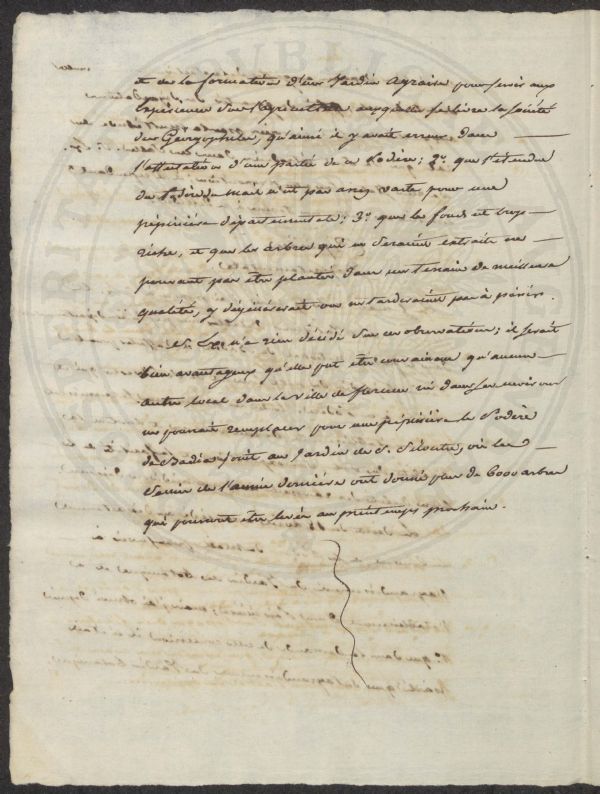 et de la formation d'un Jardin Agraire pour servir aux
Expériences sur l'agriculture auxquelles se livre la Société
des Georgophiles, qu'ainsi il y avait erreur dans
l'affectation d'une partie de ce Podère; 2.° que l'étendue
du Podère mail n'est pas assez vaste pour une
pépinière départementale; 3.° que le fonds est trop
riche, et que les arbres qui en seraient extraits ne
pouvant pas être plantés dans un terrain de meilleure
qualité, y dégénéreraient ou ne tarderaient pas à périr.
S. Ex. n'a rien décidé sur ces observations; il serait
bien avantageux qu'elle pût être convaincue qu'aucun
autre local dans la ville de florence ni dans ses environs
ne pourrait remplacer pour une pépinière le Podère
de Badia joint au Jardin de S. Silvestre, où les
Semis de l'année dernière ont donné plus de 6000 arbres
qui pourront être levés au printemps prochain.